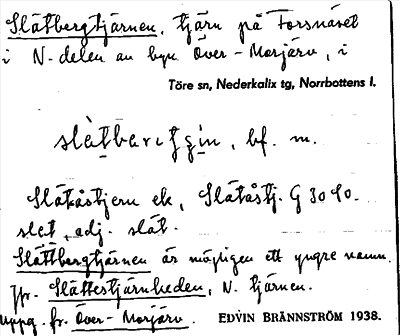 Slätbergtjärnen, tjärn på Forsnäset
i N-delen av byn Över-Morjärv, i
Töre sn, Nederkalix tg, Norrbottens l.
bf. m.
Slätåstjern ek, Slätåstj. G 30 40.
slet, adj. slät.
Slättbergtjärnen är möjligen ett yngre namn.
Jfr. Slättestjärnheden, N. tjärnen.
Uppg. fr. Över-Morjärv. EDVIN BRÄNNSTRÖM 1938.